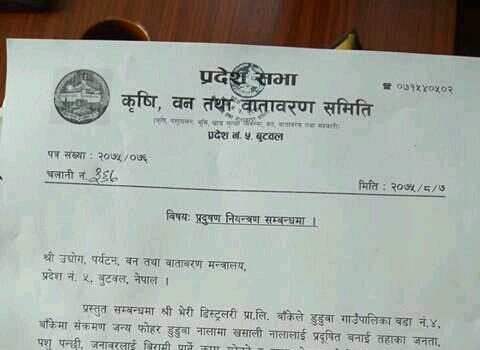 प्रदेश सभा
कृषि, वन तथा वातावरण समिति
प्रदेश नं. ५ बुटवल
☎ ०७१५४०५०२
पत्र संख्या : २०७५/०७६
चलानी नं. ३६७
मिति : २०७५/८/७
विषयः प्रदुषण नियन्त्रण सम्बन्धमा ।
श्री उद्योग, पर्यटन, वन तथा वातावरण मन्त्रालय,
प्रदेश नं. ५, बुटवल, नेपाल ।
प्रस्तुत सम्बन्धमा श्री भेरी डिस्ट्रलरी प्रा.लि. बाँकेले डुडुवा गाउँपालिका वडा नं.४,
बाँकेमा संक्रमण जन्य फोहर डुडुवा नालामा खसाली नालालाई प्रदूषित बनाई तहाका जनता,
पशु पन्छी, जनावरलाई बिरामी पार्ने काम